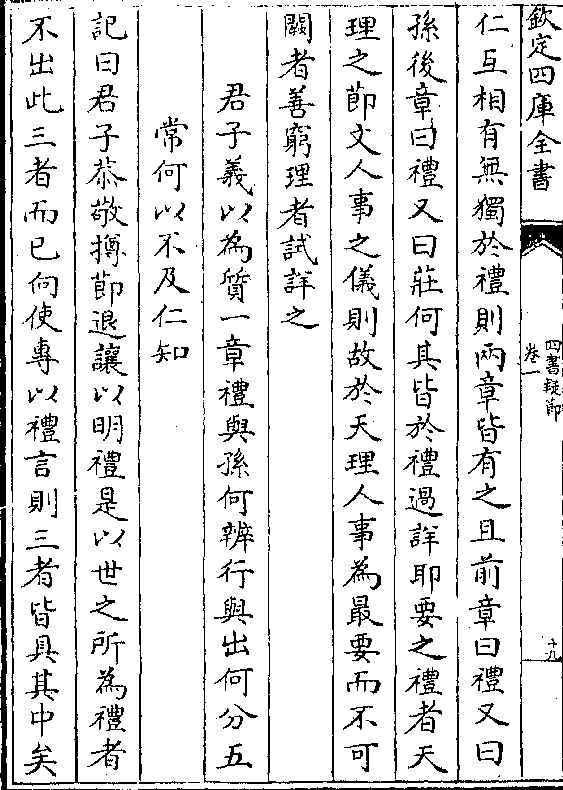 欽定四庫全書
四書疑節
卷一
十九
仁互相有無獨於禮則兩章皆有之且前章曰禮又曰
孫後章曰禮又曰莊何其皆於禮過詳耶要之禮者天
理之節文人事之儀則故於天理人事為最要而不可
闕者善窮理者試詳之
君子義以為質一章禮與孫何辨行與出何分五
常何以不及仁知
記曰君子恭敬撙節退讓以明禮是以世之所為禮者
不出此三者而已向使專以禮言則三者皆具其中矣